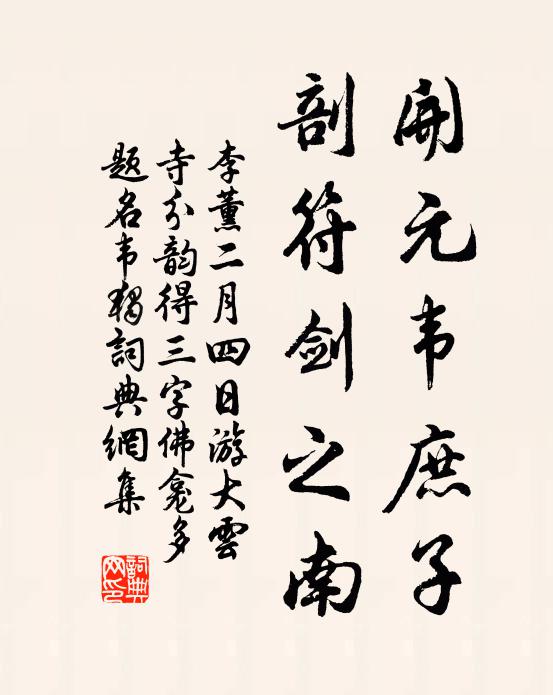 開元韦庶子
剖符剑之南
李薰二月四日游大雲
寺分韵得三字佛龛多
题名韦獨詞典網集
詞典网印